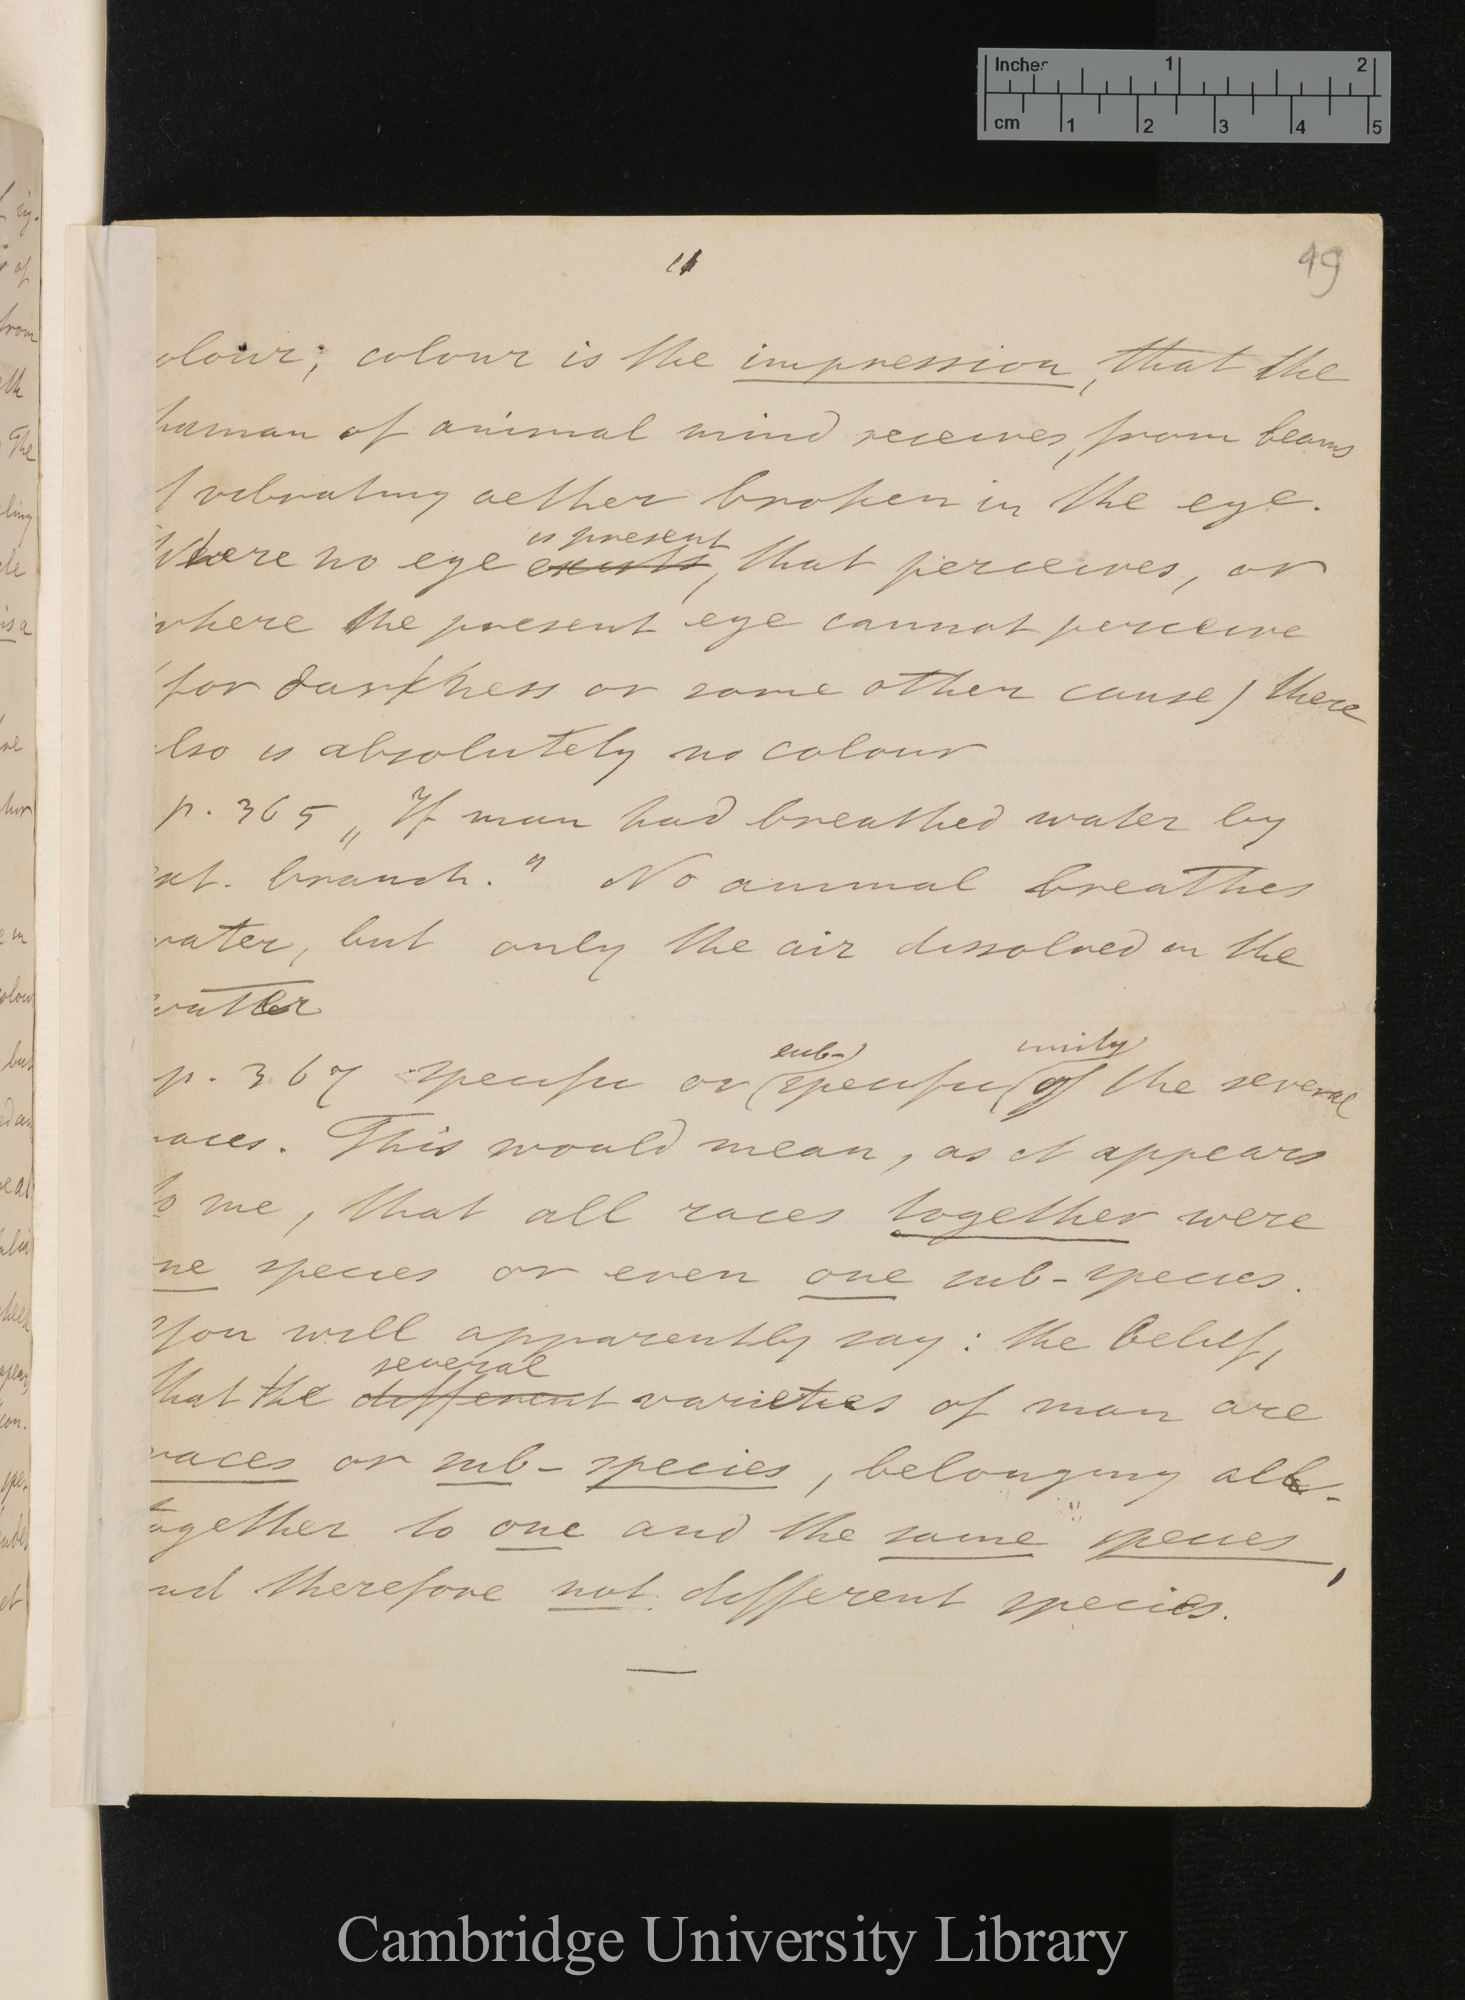 Inches 1 2
cm 1 2 3 4 5
11
49
olour; colour is the impression, that the
human of animal mind receives, from beams
f vibrating aether broken in the eye.
is present
Where no eye exists, that perceives, or
where the present eye cannot perceive
(for darkness or some other cause) there
lso is absolutely no colour
p. 365 „If man had breathed water by
ext. branch." No animal breathes
water, but only the air dissolved in the
water
sub-) unity
p. 367 specific or (specific (of the several
races. This would mean, as it appears
to me, that all races together were
ne species or even one sub-species.
You will apparently say: the belief,
several
that the different varieties of man are
races or sub-species, belonging all-
together to one and the same species,
nd therefore not different species.
Cambridge University Library